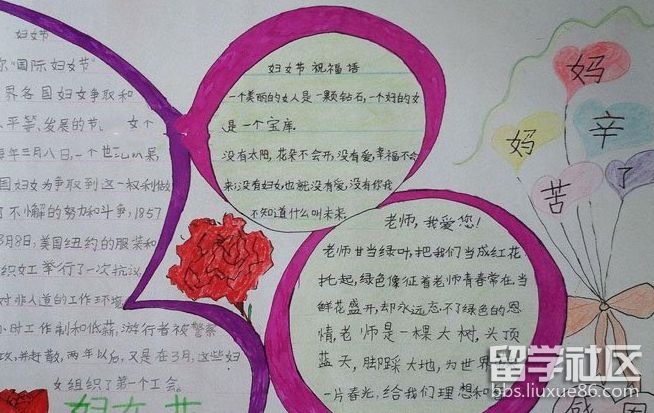 妇女节
你"国际妇女节"
界各国妇女争取和
平等、发展的节。 女个
年三月八日,一个世
国妇女为争取到这一权利做
了不懈的努力和斗争,1857
3月8日,美国纽约的服装和
织女工举行了一次抗议
对非人道的工作环境
小时工作制和低薪,游行者被警察
攻,并赶散,两年以后,又是在3月,这些妇
女组织了第一个工会。
妇女节
妇女节 祝福语
一个美丽的女人是一颗钻石,一个好的女
是一个宝库.
没有太阳,花朵不会开;没有爱,幸福不会
来;没有妇女,也就没有爱,没有你我
不知道什么叫未来.
老师,我爱您!
老师甘当绿叶,把我们当成红花
托起,绿色像征着老师青春常在.当
鲜花盛开,却永远忘不了绿色的恩
情,老师是一棵大树,头顶
蓝天,脚踩大地,为世界
一片春光,给我们理想和
妈
妈
辛
苦
了
感恩
留学社区
bbs.liuxue86.com